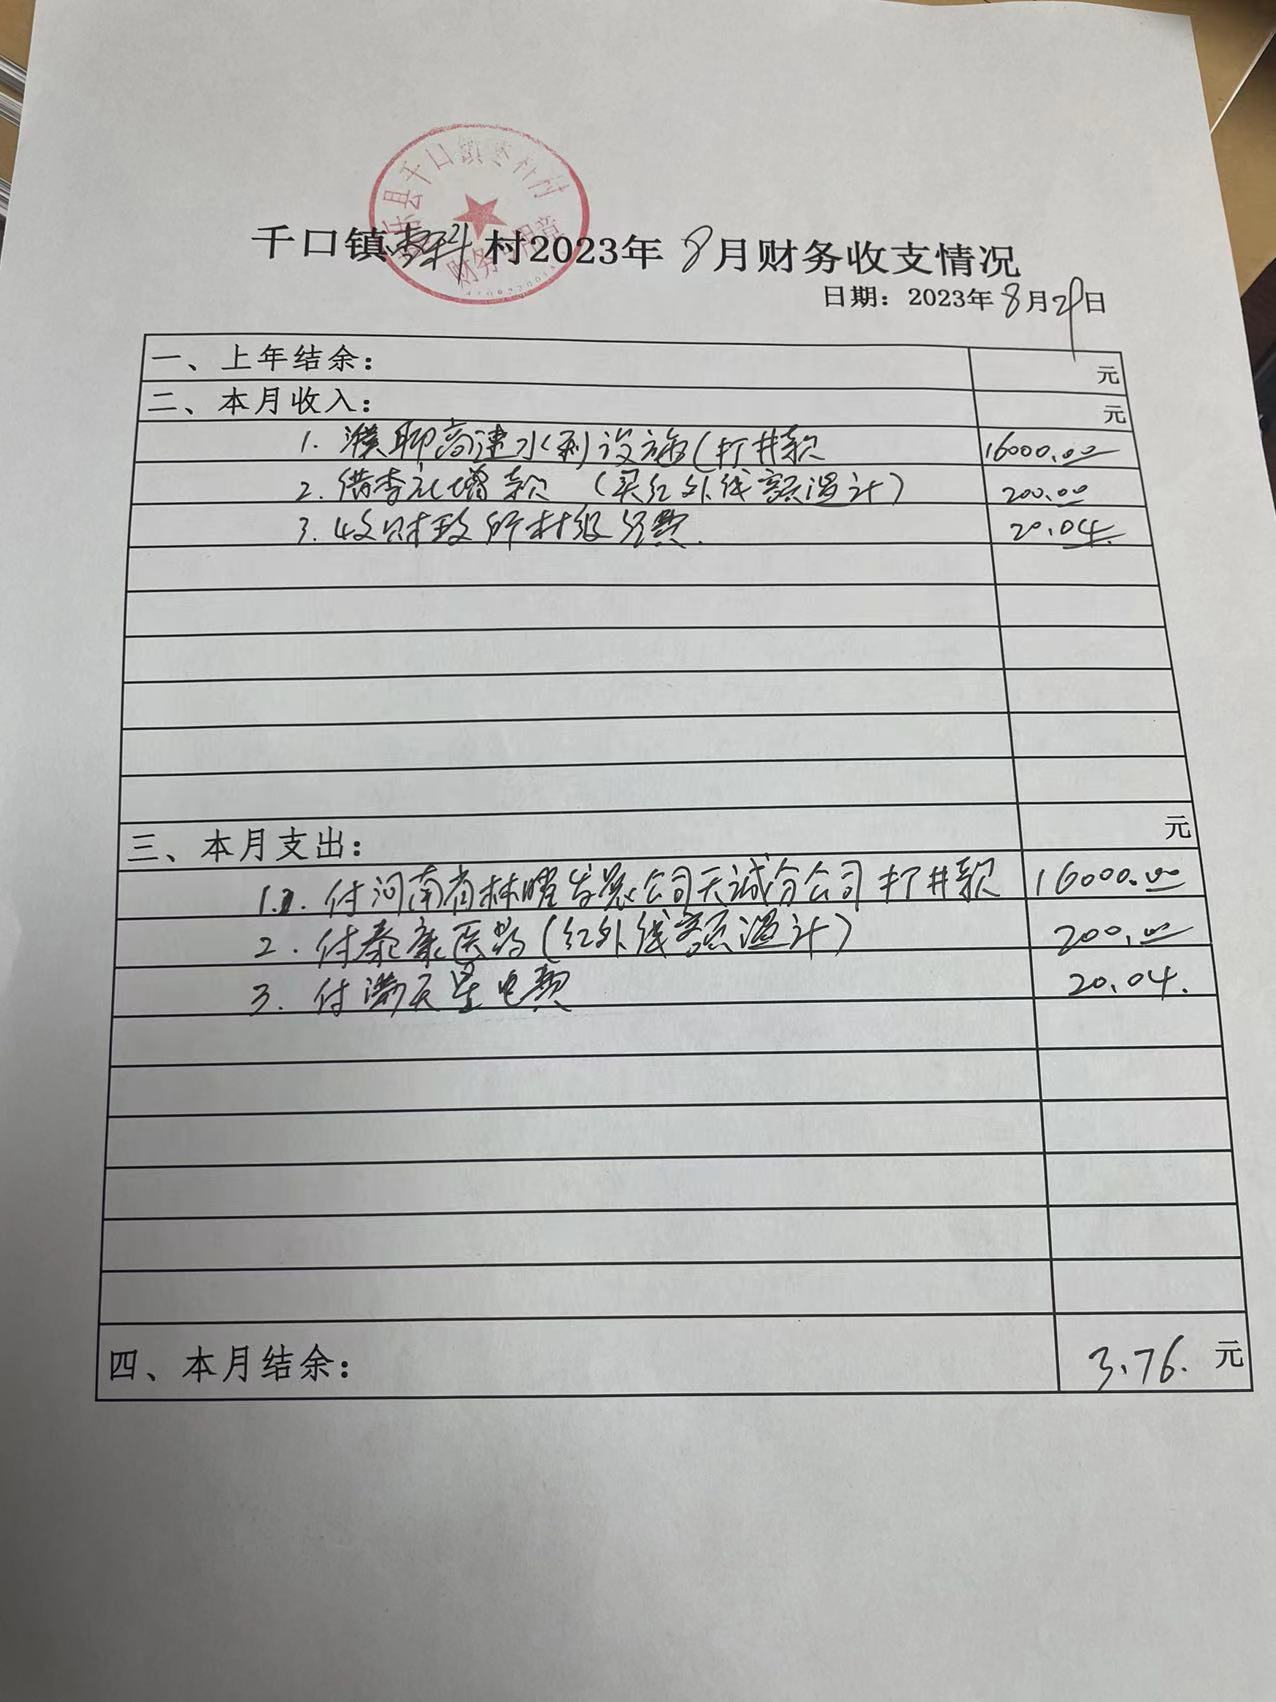 千口镇 村2023年8月财务收支情况
日期：2023年8月29日
一、上年结余： 元
二、本月收入： 元
1. 濮聊高速水利设施(打井款 16000.00
2. 借李礼增款 (买红外线额温计) 200.00
3. 收财政所村级经费. 20.04.
三、本月支出： 元
1. 付河南省林曜发展公司天诚分公司打井款 16000.00
2. 付泰康医药(红外线额温计) 200.00
3. 付满天星电费 20.04.
四、本月结余： 3.76. 元
千口镇 村
财务专用章